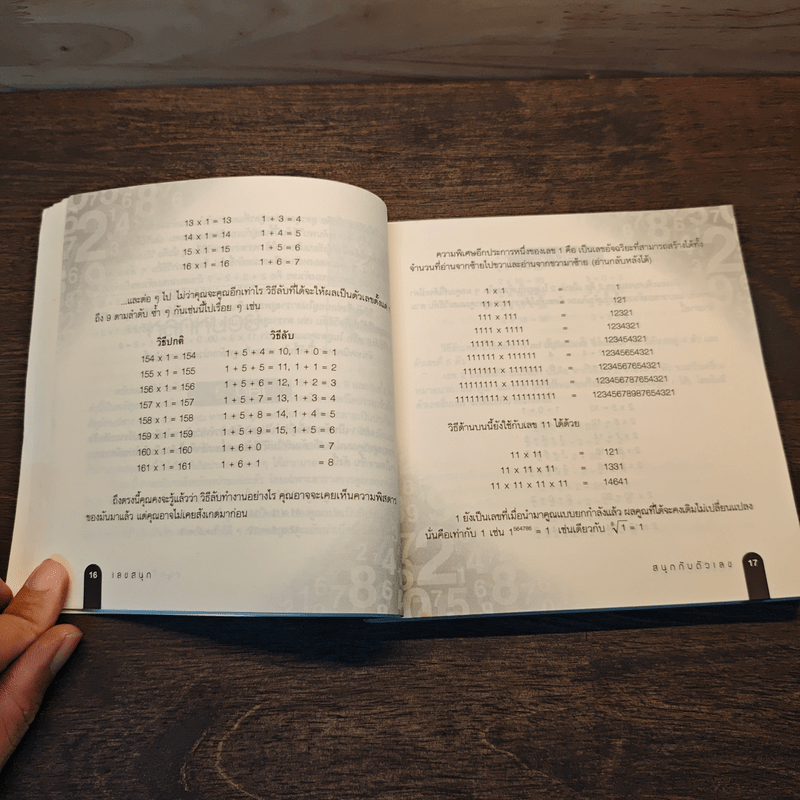 13 x 1 = 13 1 + 3 = 4
14 x 1 = 14 1 + 4 = 5
15 x 1 = 15 1 + 5 = 6
16 x 1 = 16 1 + 6 = 7
...และต่อ ๆ ไป ไม่ว่าคุณจะคูณอีกเท่าไร วิธีลับที่ได้จะให้ผลเป็นตัวเลขตั้งแต่ 1
ถึง 9 ตามลำดับ ซ้ำ ๆ กันเช่นนี้ไปเรื่อย ๆ เช่น
วิธีปกติ วิธีลับ
154 x 1 = 154 1 + 5 + 4 = 10, 1 + 0 = 1
155 x 1 = 155 1 + 5 + 5 = 11, 1 + 1 = 2
156 x 1 = 156 1 + 5 + 6 = 12, 1 + 2 = 3
157 x 1 = 157 1 + 5 + 7 = 13, 1 + 3 = 4
158 x 1 = 158 1 + 5 + 8 = 14, 1 + 4 = 5
159 x 1 = 159 1 + 5 + 9 = 15, 1 + 5 = 6
160 x 1 = 160 1 + 6 + 0 = 7
161 x 1 = 161 1 + 6 + 1 = 8
ถึงตรงนี้คุณคงจะรู้แล้วว่า วิธีลับทำงานอย่างไร คุณอาจจะเคยเห็นความพิสดาร
ของมันมาแล้ว แต่คุณอาจไม่เคยสังเกตมาก่อน
16 เลขสนุก
ความพิเศษอีกประการหนึ่งของเลข 1 คือ เป็นเลขอัจฉริยะที่สามารถสร้างได้ทั้ง
จำนวนที่อ่านจากซ้ายไปขวาและอ่านจากขวามาซ้าย (อ่านกลับหลังได้)
1 x 1 = 1
11 x 11 = 121
111 x 111 = 12321
1111 x 1111 = 1234321
11111 x 11111 = 123454321
111111 x 111111 = 12345654321
1111111 x 1111111 = 1234567654321
11111111 x 11111111 = 123456787654321
111111111 x 111111111 = 12345678987654321
วิธีด้านบนนี้ยังใช้กับเลข 11 ได้ด้วย
11 x 11 = 121
11 x 11 x 11 = 1331
11 x 11 x 11 x 11 = 14641
1 ยังเป็นเลขที่เมื่อนำมาคูณแบบยกกำลังแล้ว ผลคูณที่ได้จะคงเดิมไม่เปลี่ยนแปลง
นั่นคือเท่ากับ 1 เช่น 1⁵⁶⁴⁷⁸⁶ = 1 เช่นเดียวกับ √1 = 1
สนุกกับตัวเลข 17